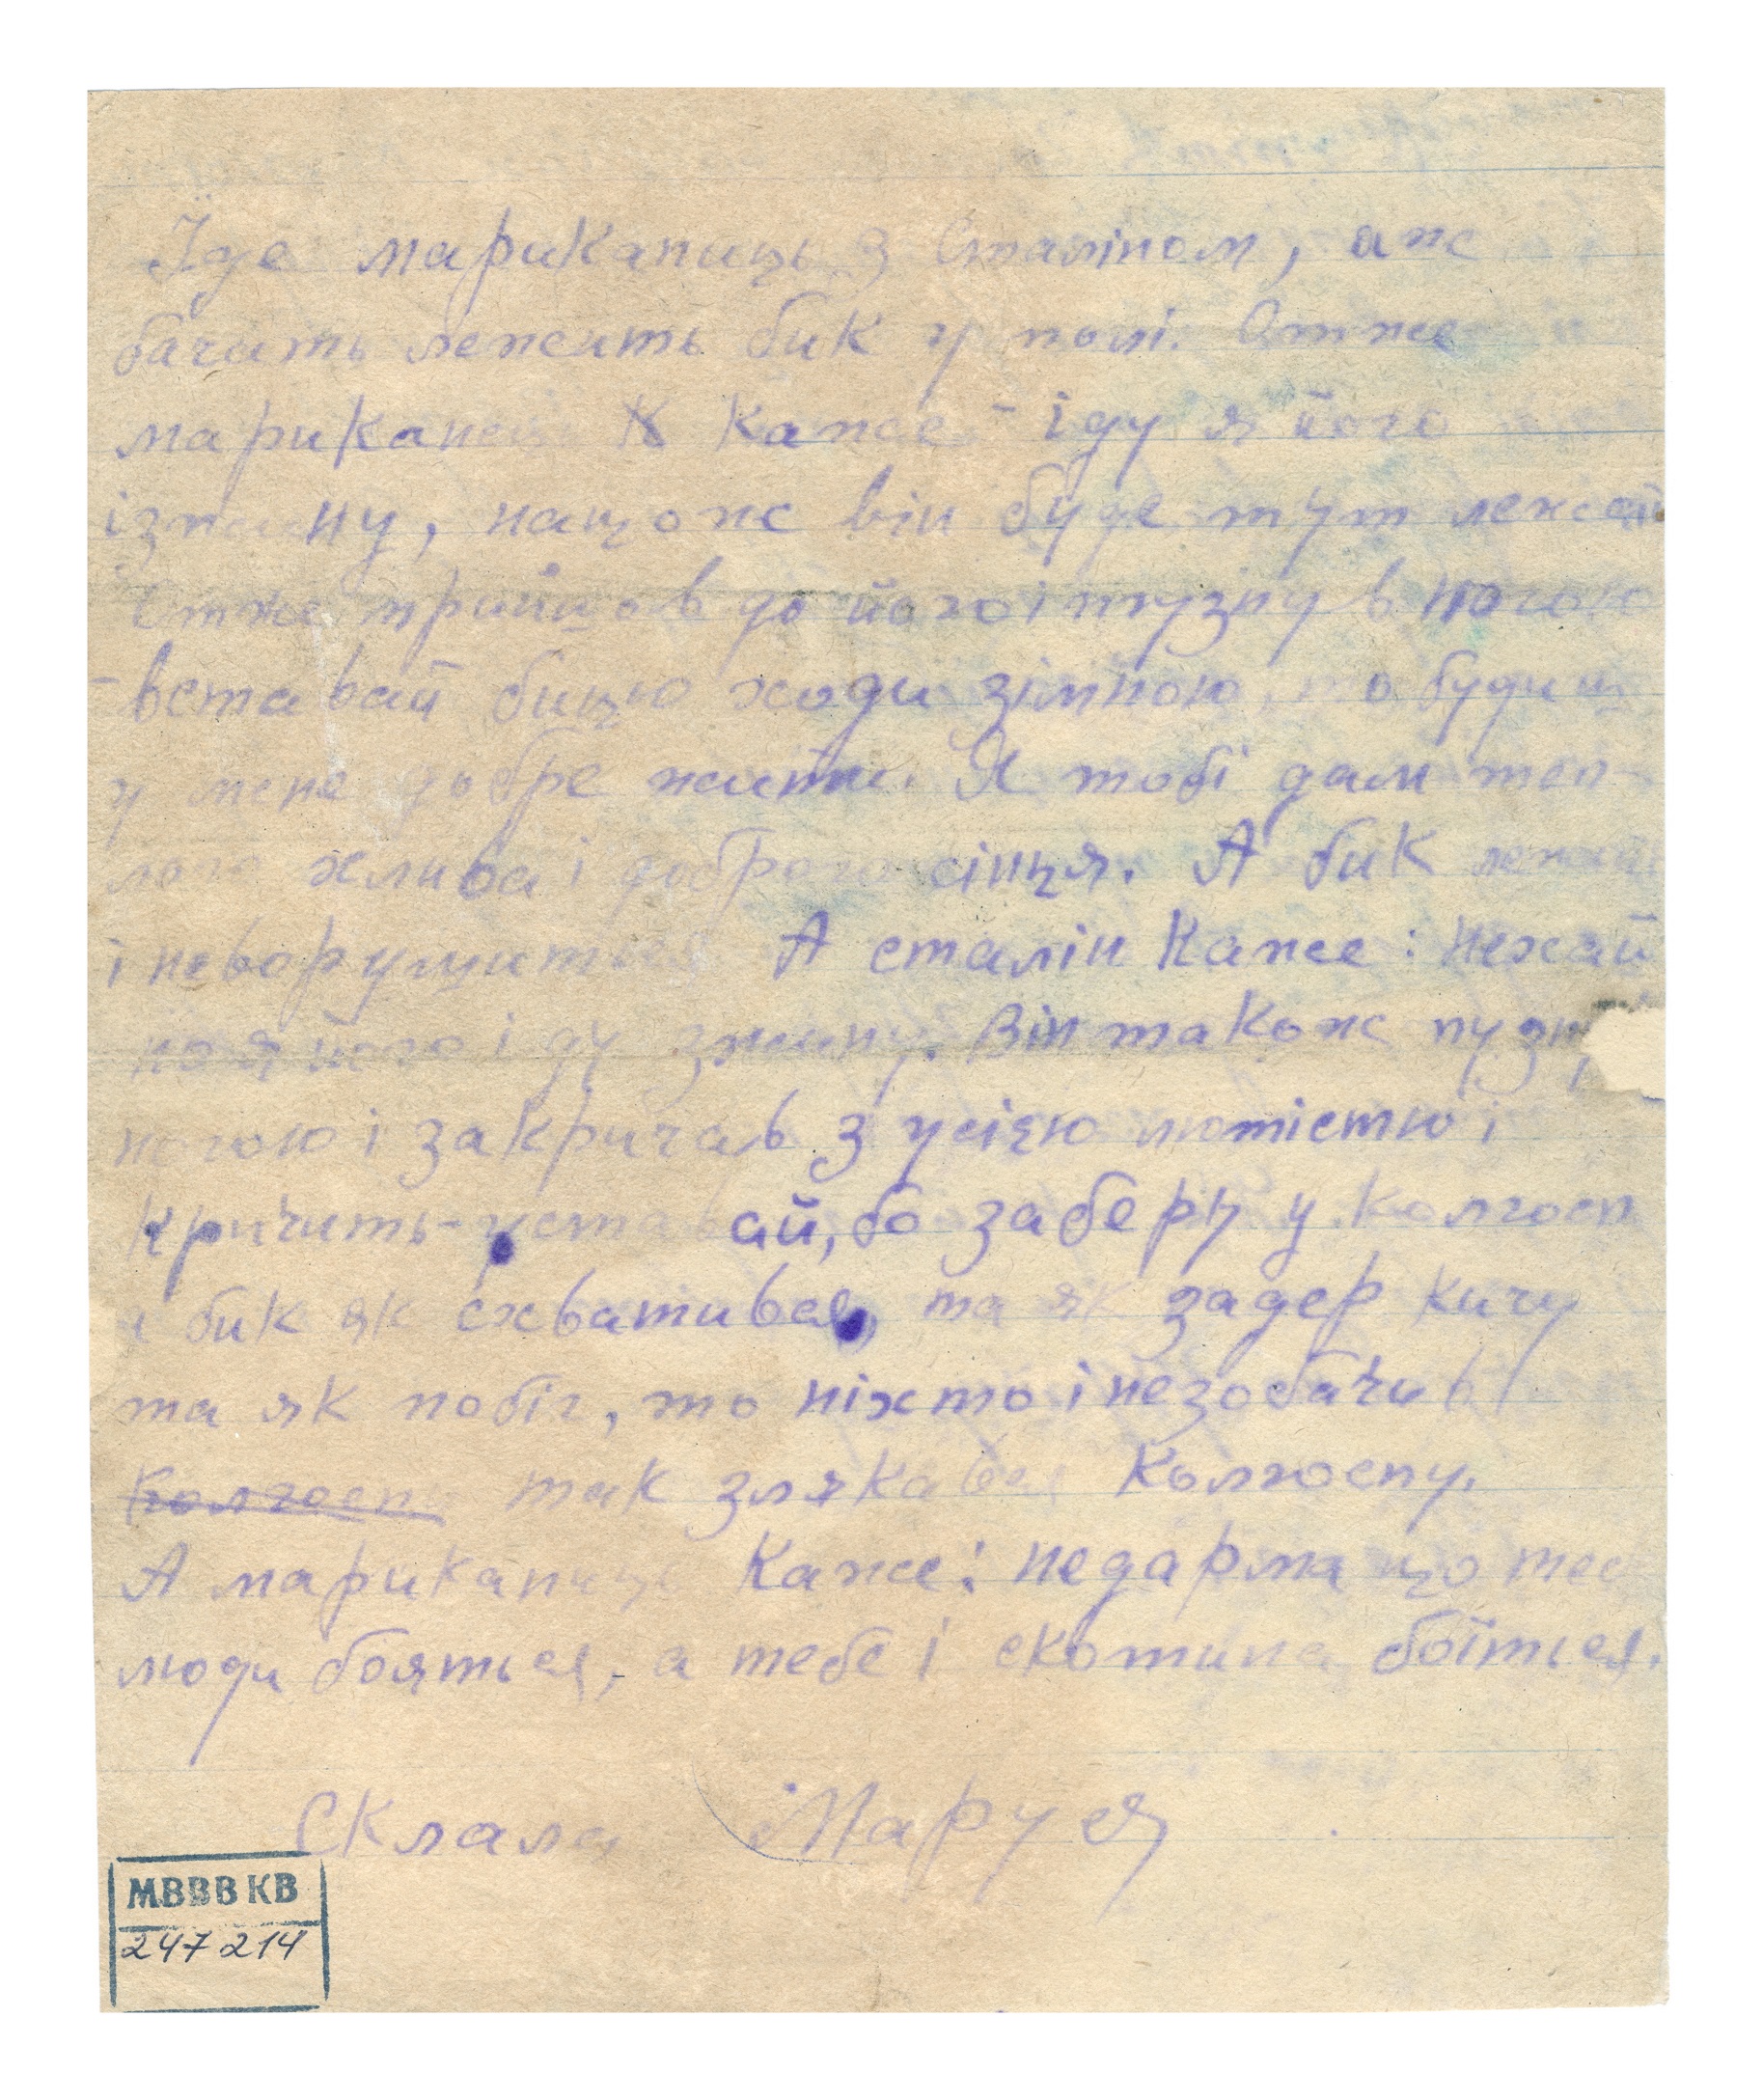 Їде мариканиць з Сталіном, аж
бачить лежить бик у полі. Отже
мариканець каже - іду я його
ізжину, нащож він буде тут лежат
Отже прийшов до його і пузнув ногою
- вставай бицю ходи зімною, то будиш
у мене добре жити. Я тобі дам теп-
лого хлива і доброго сінця. А бик лежит
і неворушиться А сталін каже: нехай
но я його іду зжину. Він також пузн
ногою і закричав з усією лютістю і
кричить - уставай, бо заберу у колгосп
а бик як схвативсь, та як задер кичу
та як побіг, то ніхто і незобачив
колгоспу так злякався колгоспу.
А мариканиць каже: недарма що тебе
люди бояться, а тебе і скотина боїться.
Склала Маруся
МВВВ КВ
247 214